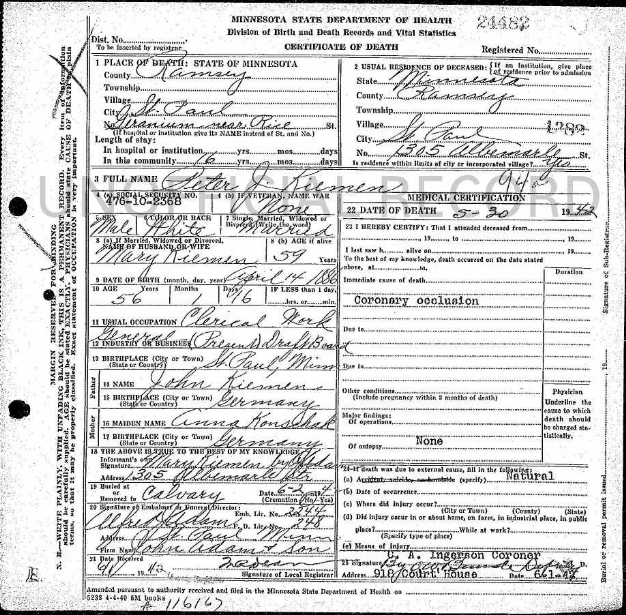 MINNESOTA STATE DEPARTMENT OF HEALTH
Division of Birth and Death Records and Vital Statistics
CERTIFICATE OF DEATH
24482
Dist. No.
To be inserted by registrar
Registered No.
1 PLACE OF DEATH: STATE OF MINNESOTA
County Ramsey
Township
Village
City St Paul
No. Geranium near Rice St.
(If hospital or institution give its NAME instead of St. and No.)
Length of stay:
In hospital or institution yrs. mos. days
In this community 16 yrs. mos. days
2 USUAL RESIDENCE OF DECEASED: (If an institution, give place of residence prior to admission
State Minnesota
County Ramsey
Township
Village
City St Paul
No. 1305 Albemarle St.
Is residence within limits of city or incorporated village? Yes
3 FULL NAME Peter J Kiemen
94a
4 (a) SOCIAL SECURITY NO. 476-10-2368
4 (b) IF VETERAN, NAME WAR None
5 SEX Male
6 COLOR OR RACE White
7 Single, Married, Widowed or Divorced (Write the word) Married
8 (a) If Married, Widowed or Divorced, NAME OF HUSBAND OR WIFE Mary Kiemen
8 (b) AGE if alive 59 Years
9 DATE OF BIRTH (month, day, year) April 14 1886
10 AGE Years 56 Months 1 Days 16 IF LESS than 1 day, hrs. or min.
11 USUAL OCCUPATION Clerical Work
12 INDUSTRY OR BUSINESS General (Present) Draft Board
13 BIRTHPLACE (City or Town) (State or Country) St Paul, Minn
Father
14 NAME John Kiemen
15 BIRTHPLACE (City or Town) (State or Country) Germany
Mother
16 MAIDEN NAME Anna Konschak
17 BIRTHPLACE (City or Town) (State or Country) Germany
18 THE ABOVE IS TRUE TO THE BEST OF MY KNOWLEDGE
Informant's Signature Mary Kiemen by
Address 1305 Albemarle St
19 Buried at or Removed to Calvary Date 6-3 194
(Cremation) (No-Yes)
20 Signature of Embalmer or Funeral Director: Emb. Lic. No. 2244
Alfred J Adams D. Lic. No. 248
Address St Paul Minn
Firm Name John Adams & Son
21 Date Received 6/1 1942
Signature of Local Registrar
MEDICAL CERTIFICATION
22 DATE OF DEATH 5-30 1942
23 I HEREBY CERTIFY: That I attended deceased from
, 19 , to , 19
I last saw h alive on 19
To the best of my knowledge, death occurred on the date stated above, at m.
Duration
Immediate cause of death
Coronary occlusion
Due to
Due to
Other conditions
(Include pregnancy within 3 months of death)
Major findings:
Of operations
Of autopsy None
Physician
Underline the cause to which death should be charged statistically.
24 If death was due to external cause, fill in the following
(a) Accident, suicide, or homicide (specify) Natural
(b) Date of occurrence
(c) Where did injury occur?
(City or Town) (County) (State)
(d) Did injury occur in or about home, on farm, in industrial place, in public place? While at work?
(Specify type of place)
(e) Means of injury
C. A. Ingerson Coroner
25 Signature By Deputy
Address 918 Court House Date 6-1-42
Amended pursuant to authority received and filed in the Minnesota State Department of Health on
5232 4-4-40 5M books
# 116167
MARGIN RESERVED FOR BINDING
N. B.—WRITE PLAINLY, WITH UNFADING BLACK INK, THIS IS A PERMANENT RECORD. Every item of information should be carefully supplied. AGE should be stated EXACTLY. PHYSICIANS should state CAUSE OF DEATH in plain terms, so that it may be properly classified. Exact statement of OCCUPATION is very important.
Signature of Sub-Registrar
Burial or removal permit issued